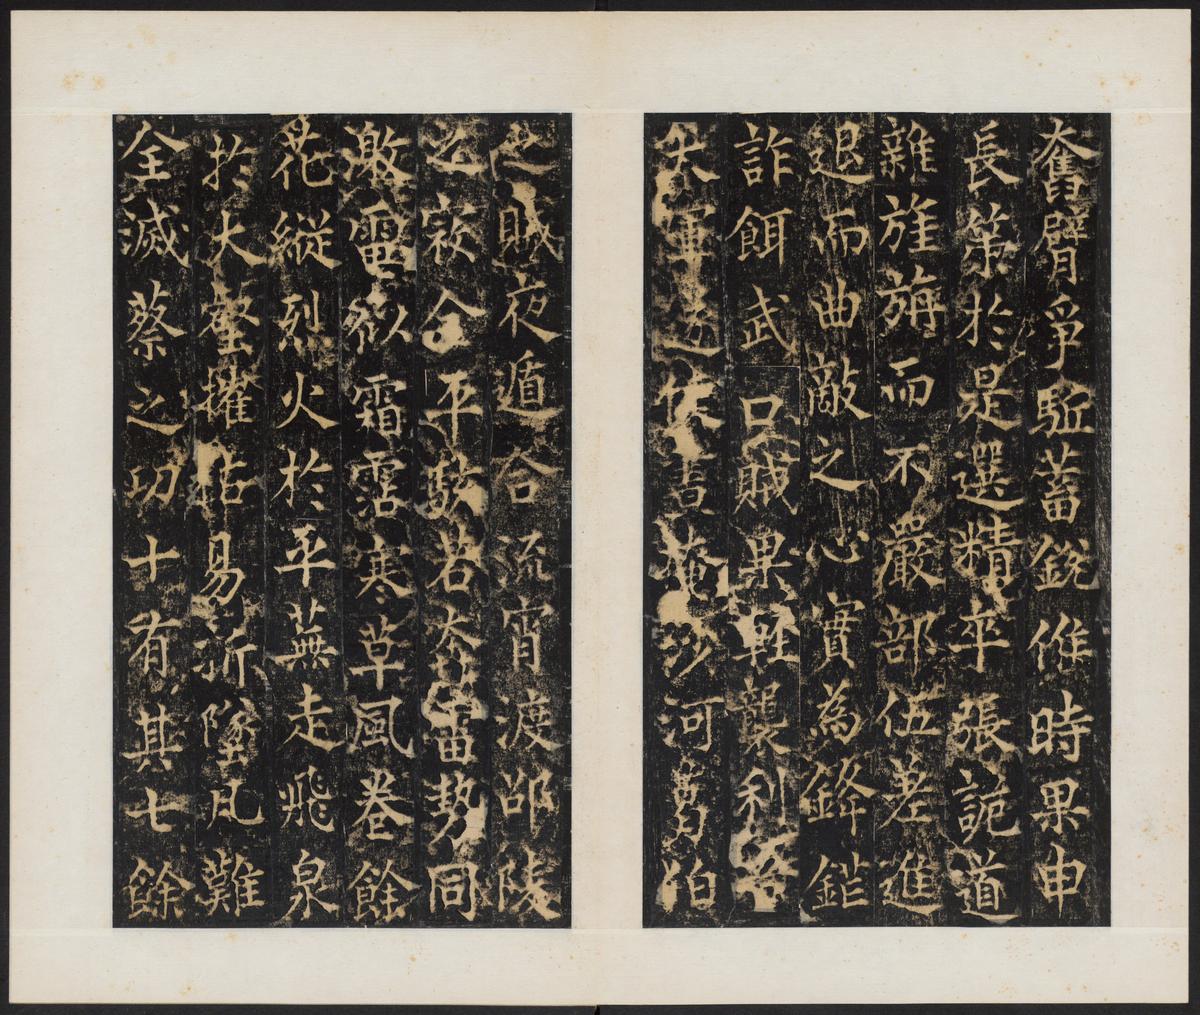 奮臂爭駈蓄銳俟時果申
長策於是選精卒張詭道
雜旌旃而不嚴部伍差進
退而曲敵之心實為鋒鎧
詐餌武口賊果輕襲利
失軍掩沙河葛伯
賊夜遁合流宵渡郃陵
之寂全平駭若奔雷勢同
激電袗霜霑寒草風卷餘
花縱烈火於平蕪走飛泉
於大壑摧枯易沂墜凡難
全滅蔡之功十有其七餘